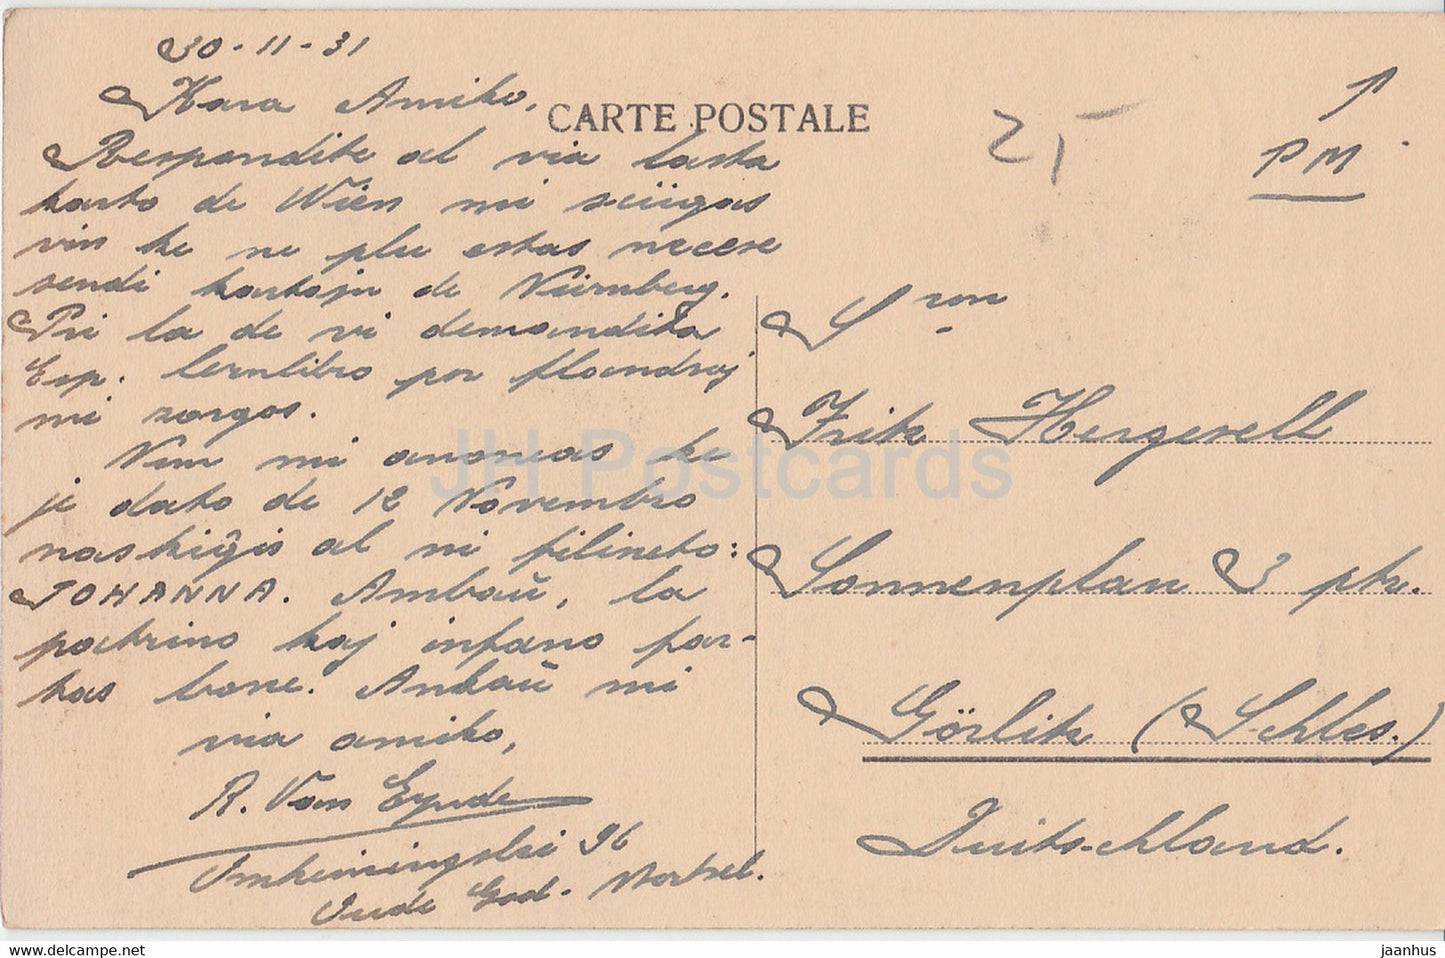 30-11-31
Kara Amiko,
CARTE POSTALE
25
PM
Respondite al via lasta
karto de Wien mi sciigas
vin ke ne plu estas necese
sendi kartojn de Nürnberg.
Pri la de vi demandita
Esp. lernlibro por flandroj
mi zorgos.
Nun mi anoncas ke
je dato de 12 Novembro
naskiĝis al ni filineto:
JOHANNA. Ambaŭ, la
patrino kaj infano far-
tas bone. Ankaŭ mi
via amiko,
R. Van Eynde
96
Oude God - Mortsel.
Sron
Fritz Hergesell
Sonnenplan 3 ptr.
Görlitz (Schles.)
Duitschland.
JH Postcards
https://www.delcampe.net
jaanhus